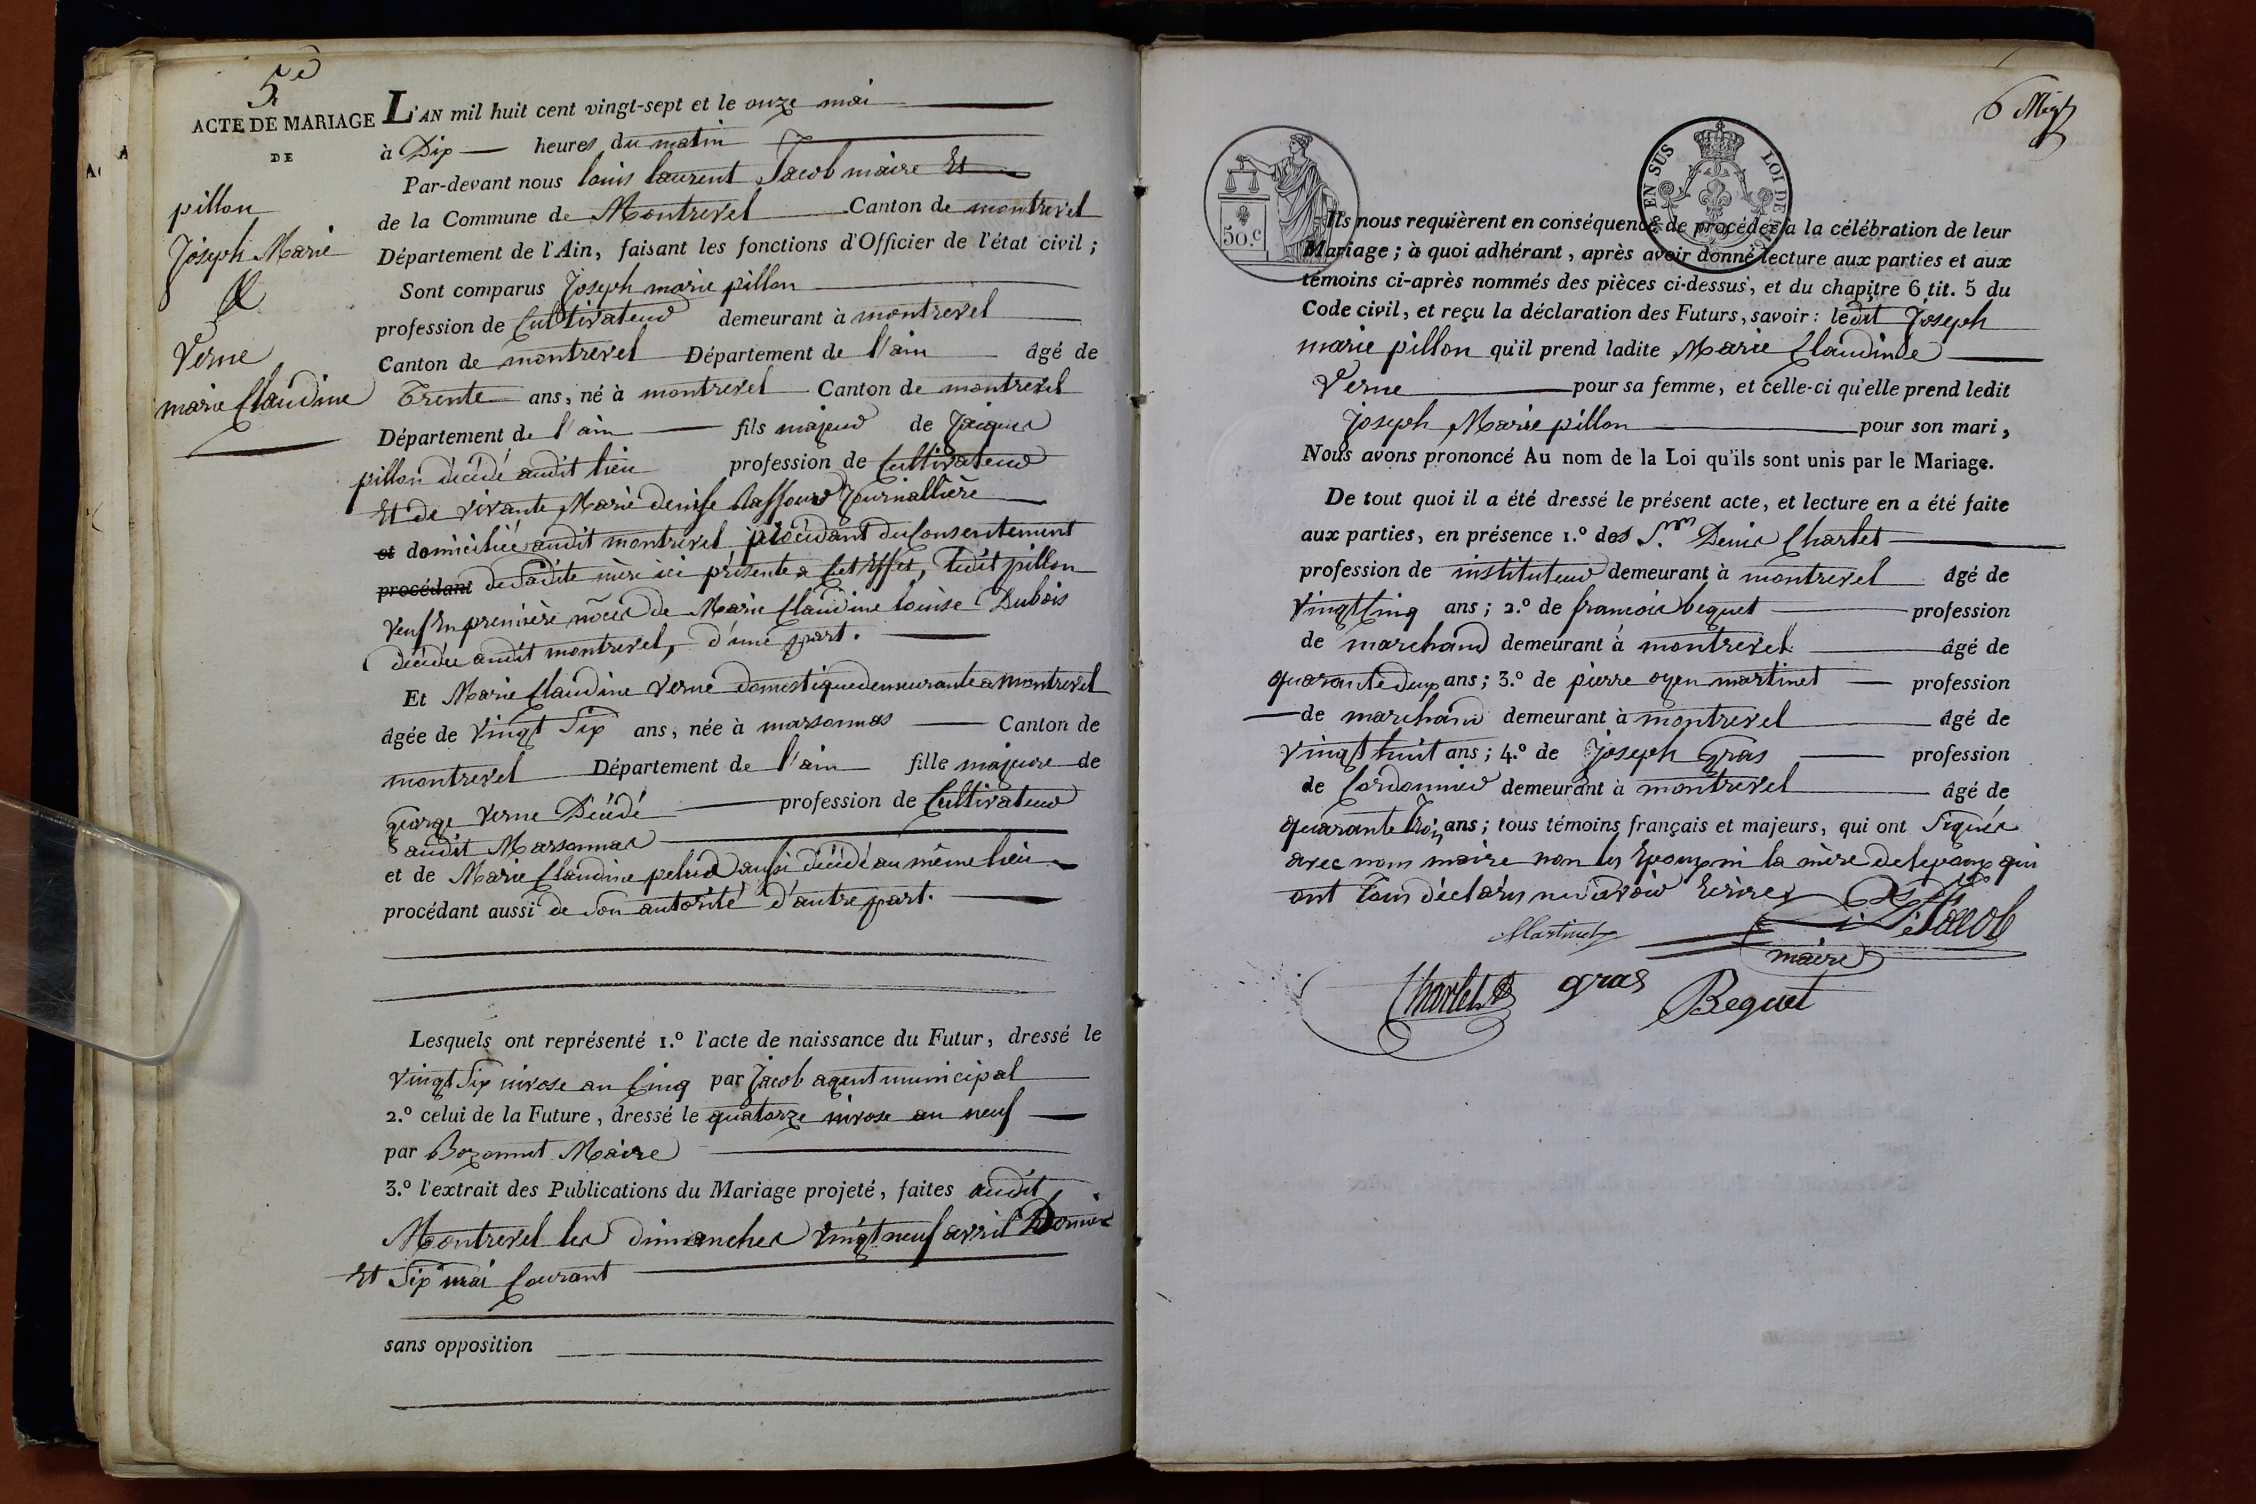 5e
ACTE DE MARIAGE
DE
pillon
Joseph Marie
&
Verne
marie Claudine
L'AN mil huit cent vingt-sept et le onze mai
à Dix heures du matin
Par-devant nous louis laurent Jacob maire Et
de la Commune de Montrevel Canton de montrevel
Département de l'Ain, faisant les fonctions d'Officier de l'état civil ;
Sont comparus Joseph marie pillon
profession de Cultivateur demeurant à montrevel
Canton de montrevel Département de l'ain âgé de
Trente ans, né à montrevel Canton de montrevel
Département de l'ain fils majeur de Jacques
pillon décédé audit lieu profession de Cultivateur
Et de vivante Marie denise Journallière
et domiciliée audit montrevel procédant du Consentement
procédant de Sadite mère ici présente a Cet Effet, ledit pillon
veuf En première nôces de Marie Claudine louise Dubois
décédée audit montrevel, d'une part.
Et Marie Claudine verne domestique demeurante a montrevel
âgée de vingt Six ans, née à marsonnas Canton de
montrevel Département de l'ain fille majeure de
george verne Décédé profession de Cultivateur
audit Marsonnas
et de Marie Claudine aussi décédé au même lieu
procédant aussi de son autorité d'autre part.
Lesquels ont représenté 1.º l'acte de naissance du Futur, dressé le
vingt Six nivose an Cinq par Jacob agent municipal
2.º celui de la Future, dressé le quatorze nivose an neuf
par Bozonnet Maire
3.º l'extrait des Publications du Mariage projeté, faites audit
Montrevel les dimanches vingt neuf avril Dernier
Et Six mai Courant
sans opposition
6
50.c
EN SUS
LOI DE
Ils nous requièrent en conséquence de procéder à la célébration de leur
Mariage ; à quoi adhérant, après avoir donné lecture aux parties et aux
témoins ci-après nommés des pièces ci-dessus, et du chapitre 6 tit. 5 du
Code civil, et reçu la déclaration des Futurs, savoir : ledit Joseph
marie pillon qu'il prend ladite Marie Claudinde
Verne pour sa femme, et celle-ci qu'elle prend ledit
Joseph Marie pillon pour son mari,
Nous avons prononcé Au nom de la Loi qu'ils sont unis par le Mariage.
De tout quoi il a été dressé le présent acte, et lecture en a été faite
aux parties, en présence 1.º des S.rs Denis Charlet
profession de instituteur demeurant à montrevel âgé de
vingt Cinq ans ; 2.º de francois bequet profession
de marchand demeurant à montrevel âgé de
quarante deux ans ; 3.º de pierre oyen martinet profession
de marchand demeurant à montrevel âgé de
vingt huit ans ; 4.º de Joseph Gras profession
de Cordonnier demeurant à montrevel âgé de
quarante Trois ans ; tous témoins français et majeurs, qui ont signés
avec nous maire non les Epoux ni la mère de lepoux qui
ont Tous déclarés ne savoir Ecrire
Martinet
Jacob
maire
Charlet gras
Bequet